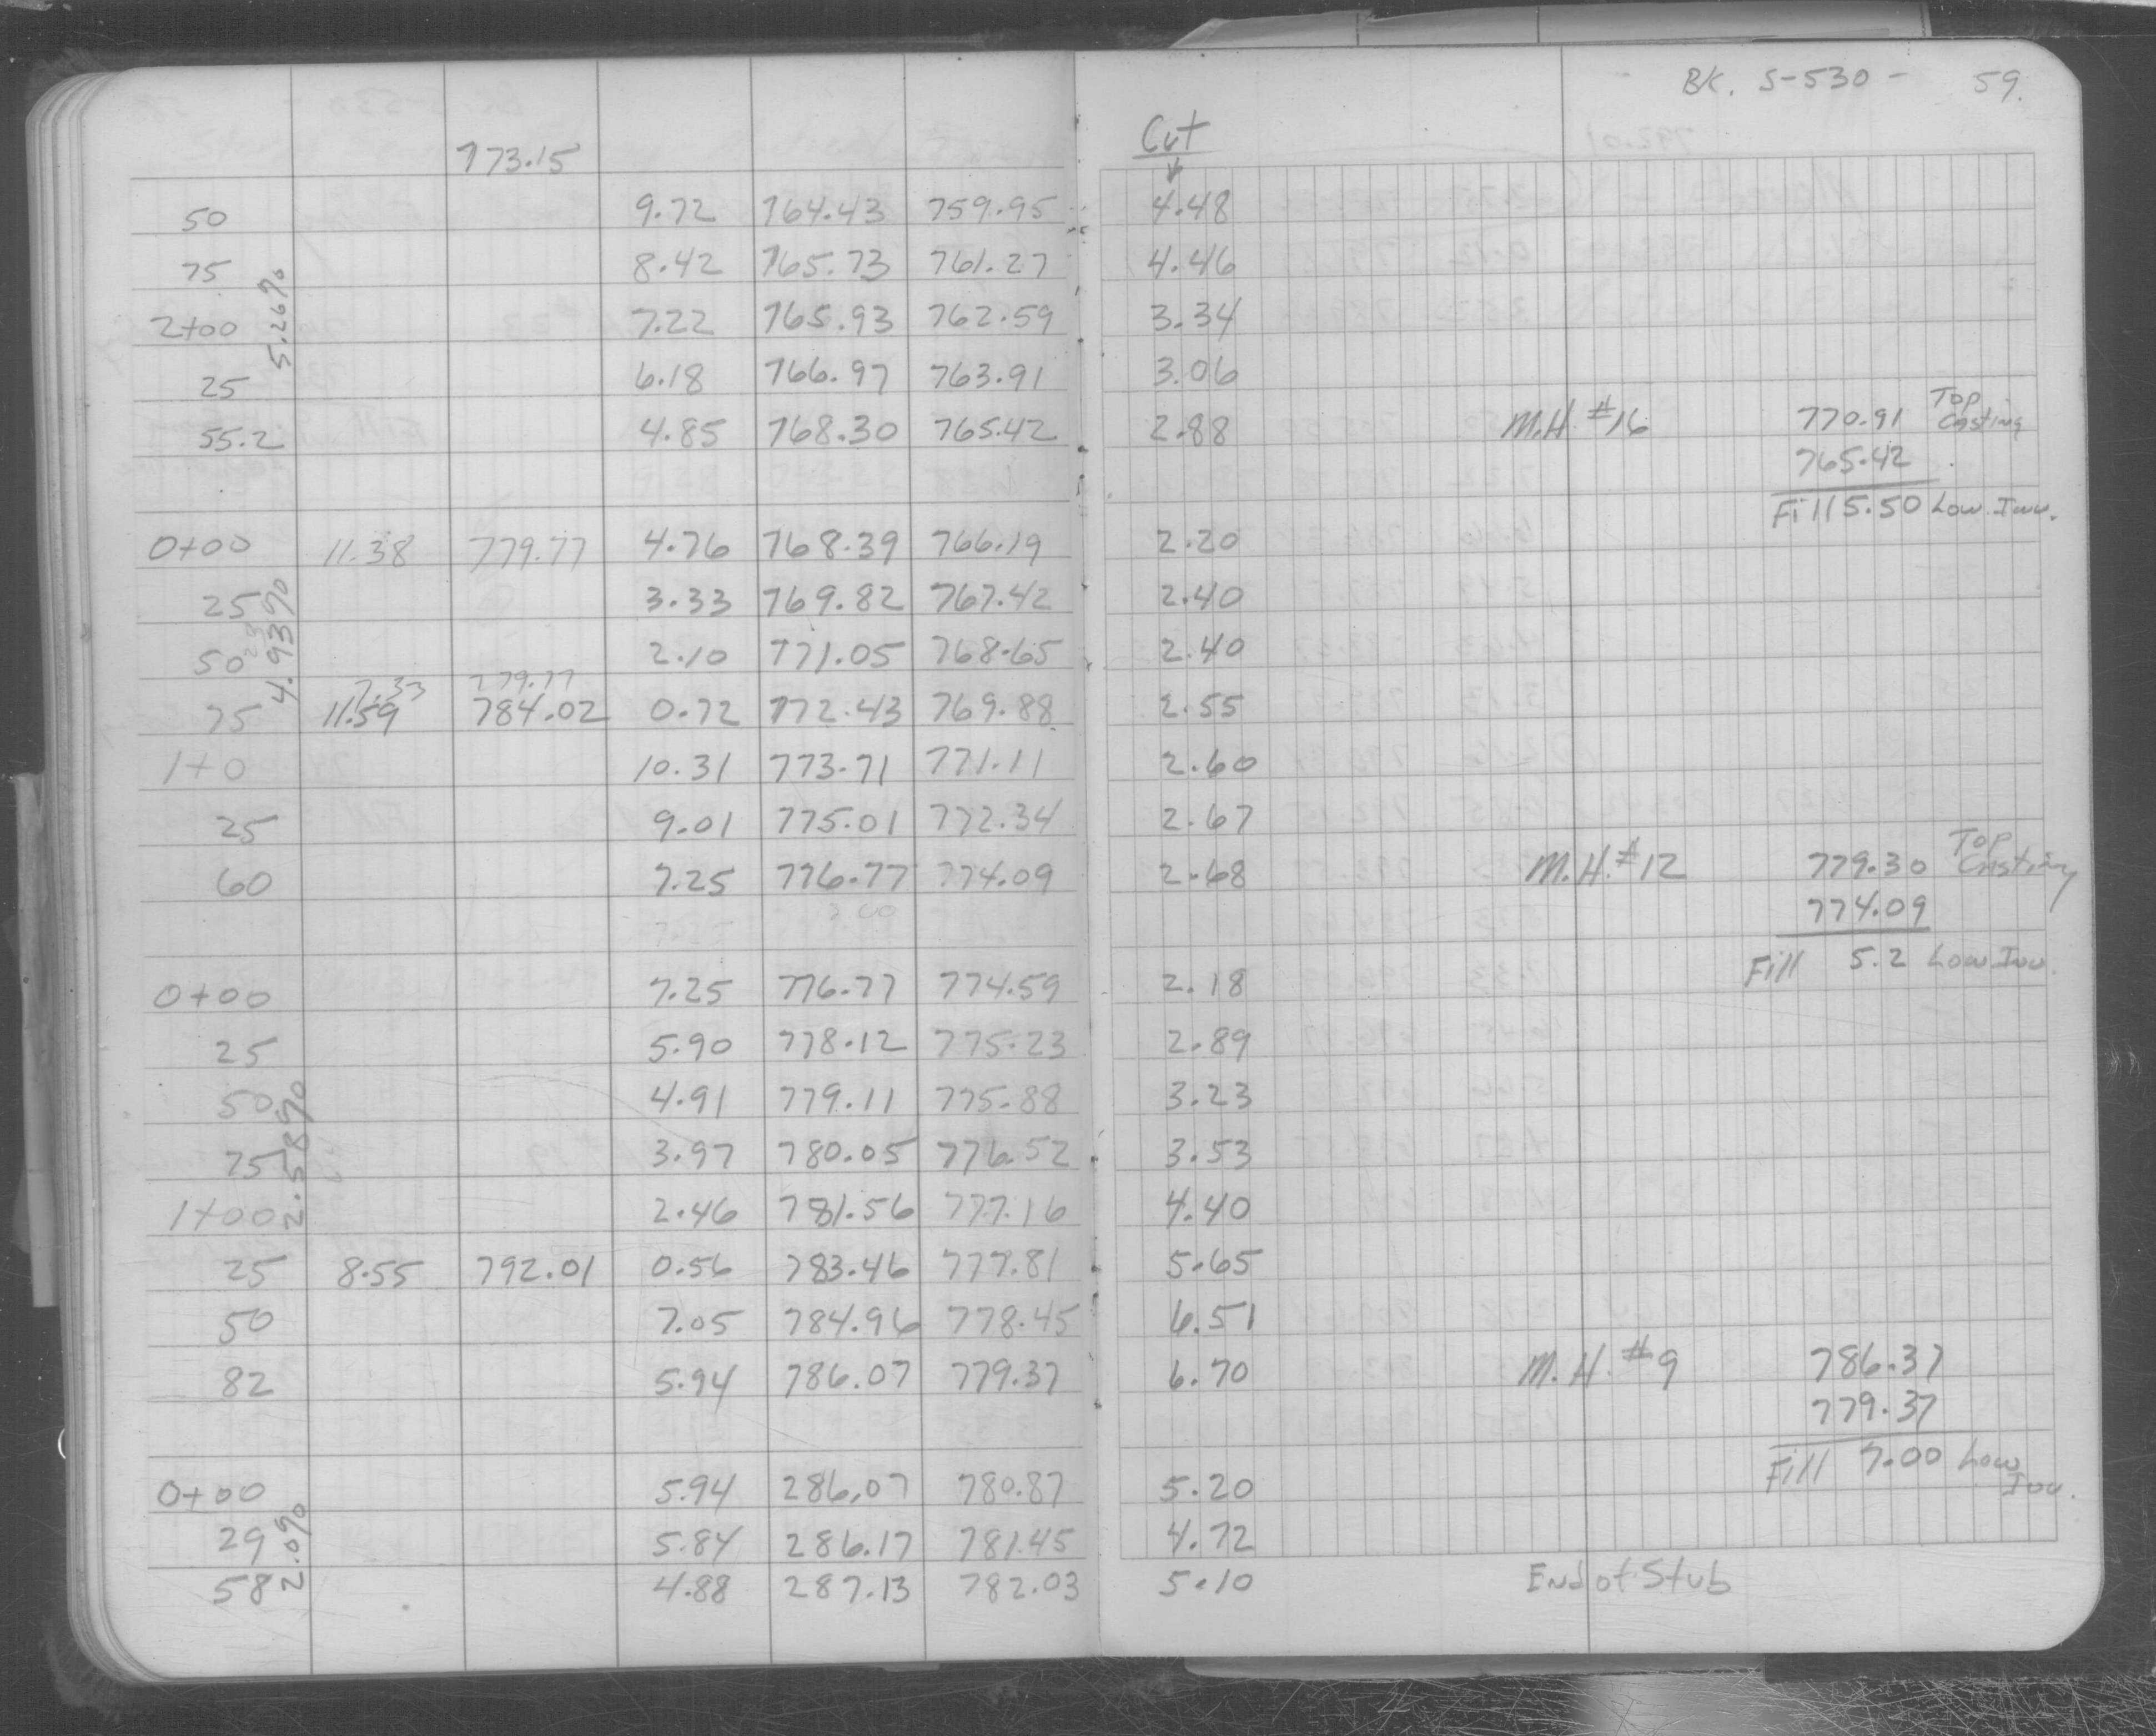 BK. S-530 - 59.
773.15 Cut
50 9.72 764.43 759.95 4.48
75 8.42 765.73 761.27 4.46
2+00 7.22 765.93 762.59 3.34
5.26%
25 6.18 766.97 763.91 3.06
55.2 4.85 768.30 765.42 2.88 M.H. #16 770.91 Top Casting
765.42
Fill 5.50 Low Inv.
0+00 11.38 779.77 4.76 768.39 766.19 2.20
25 3.33 769.82 767.42 2.40
4.93%
50 2.10 771.05 768.65 2.40
7.33 779.77
75 11.59 784.02 0.72 772.43 769.88 2.55
1+0 10.31 773.71 771.11 2.60
25 9.01 775.01 772.34 2.67
60 7.25 776.77 774.09 2.68 M.H. #12 779.30 Top Casting
774.09
Fill 5.2 Low Inv.
0+00 7.25 776.77 774.59 2.18
25 5.90 778.12 775.23 2.89
50 4.91 779.11 775.88 3.23
2.58%
75 3.97 780.05 776.52 3.53
1+00 2.46 781.56 777.16 4.40
25 8.55 792.01 0.56 783.46 777.81 5.65
50 7.05 784.96 778.45 6.51
82 5.94 786.07 779.37 6.70 M.H. #9 786.37
779.37
Fill 7.00 Low Inv.
0+00 5.94 286.07 780.87 5.20
29 5.84 286.17 781.45 4.72
2.0%
58 4.88 287.13 782.03 5.10 End of Stub